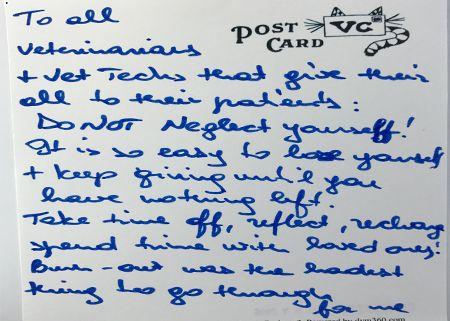 To all
POST CARD
VC
veterinarians
+ Vet Techs that give their
all to their patients:
Do NOT Neglect yourself!
It is so easy to lose yourself
+ keep giving until you
have nothing left.
Take time off, reflect, recharge
spend time with loved ones!
Burn-out was the hardest
thing to go through
for me
by dvm360.com